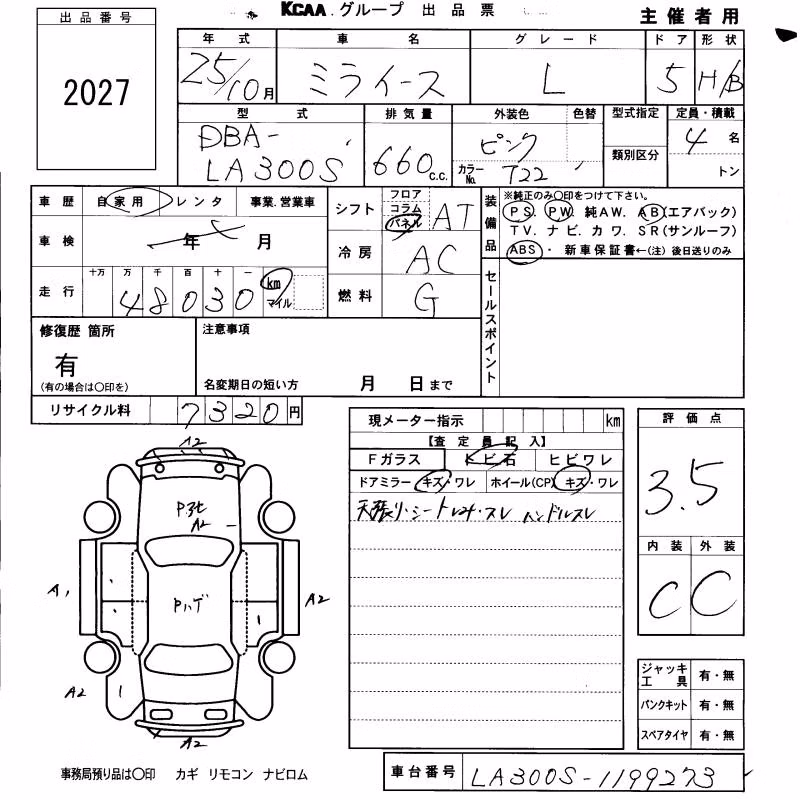 KCAA グループ 出品票 主催者用
出品番号
2027
年式 車名 グレード ドア 形状
25/10月 ミライース L 5 H/B
型式 排気量 外装色 色替 型式指定 定員・積載
DBA-
LA300S 660 C.C. ピンク カラーNo. T22 類別区分 4名 トン
車歴 自家用 レンタ 事業.営業車
車検 年 月
走行 十万 万 千 百 十 一
48030 km マイル
シフト フロア コラム パネル AT
冷房 AC
燃料 G
装備品 ※純正のみ〇印をつけて下さい。
PS. PW. 純AW. AB(エアバック)
TV. ナビ. カワ. SR(サンルーフ)
ABS ・ 新車保証書←(注) 後日送りのみ
セールスポイント
修復歴 箇所
有
(有の場合は〇印を)
注意事項
名変期日の短い方 月 日まで
リサイクル料 7320円
現メーター指示 km
【査定員記入】
Fガラス トビ石 ヒビワレ
ドアミラー キズ・ワレ ホイール(CP) キズ・ワレ
天張り・シート スレ ハンドルスレ
評価点
3.5
内装 外装
C C
A2
A2
Pハゲ
A1
A2
A2
A2
ジャッキ工具 有・無
パンクキット 有・無
スペアタイヤ 有・無
事務局預り品は〇印 カギ リモコン ナビロム
車台番号 LA300S-1199273